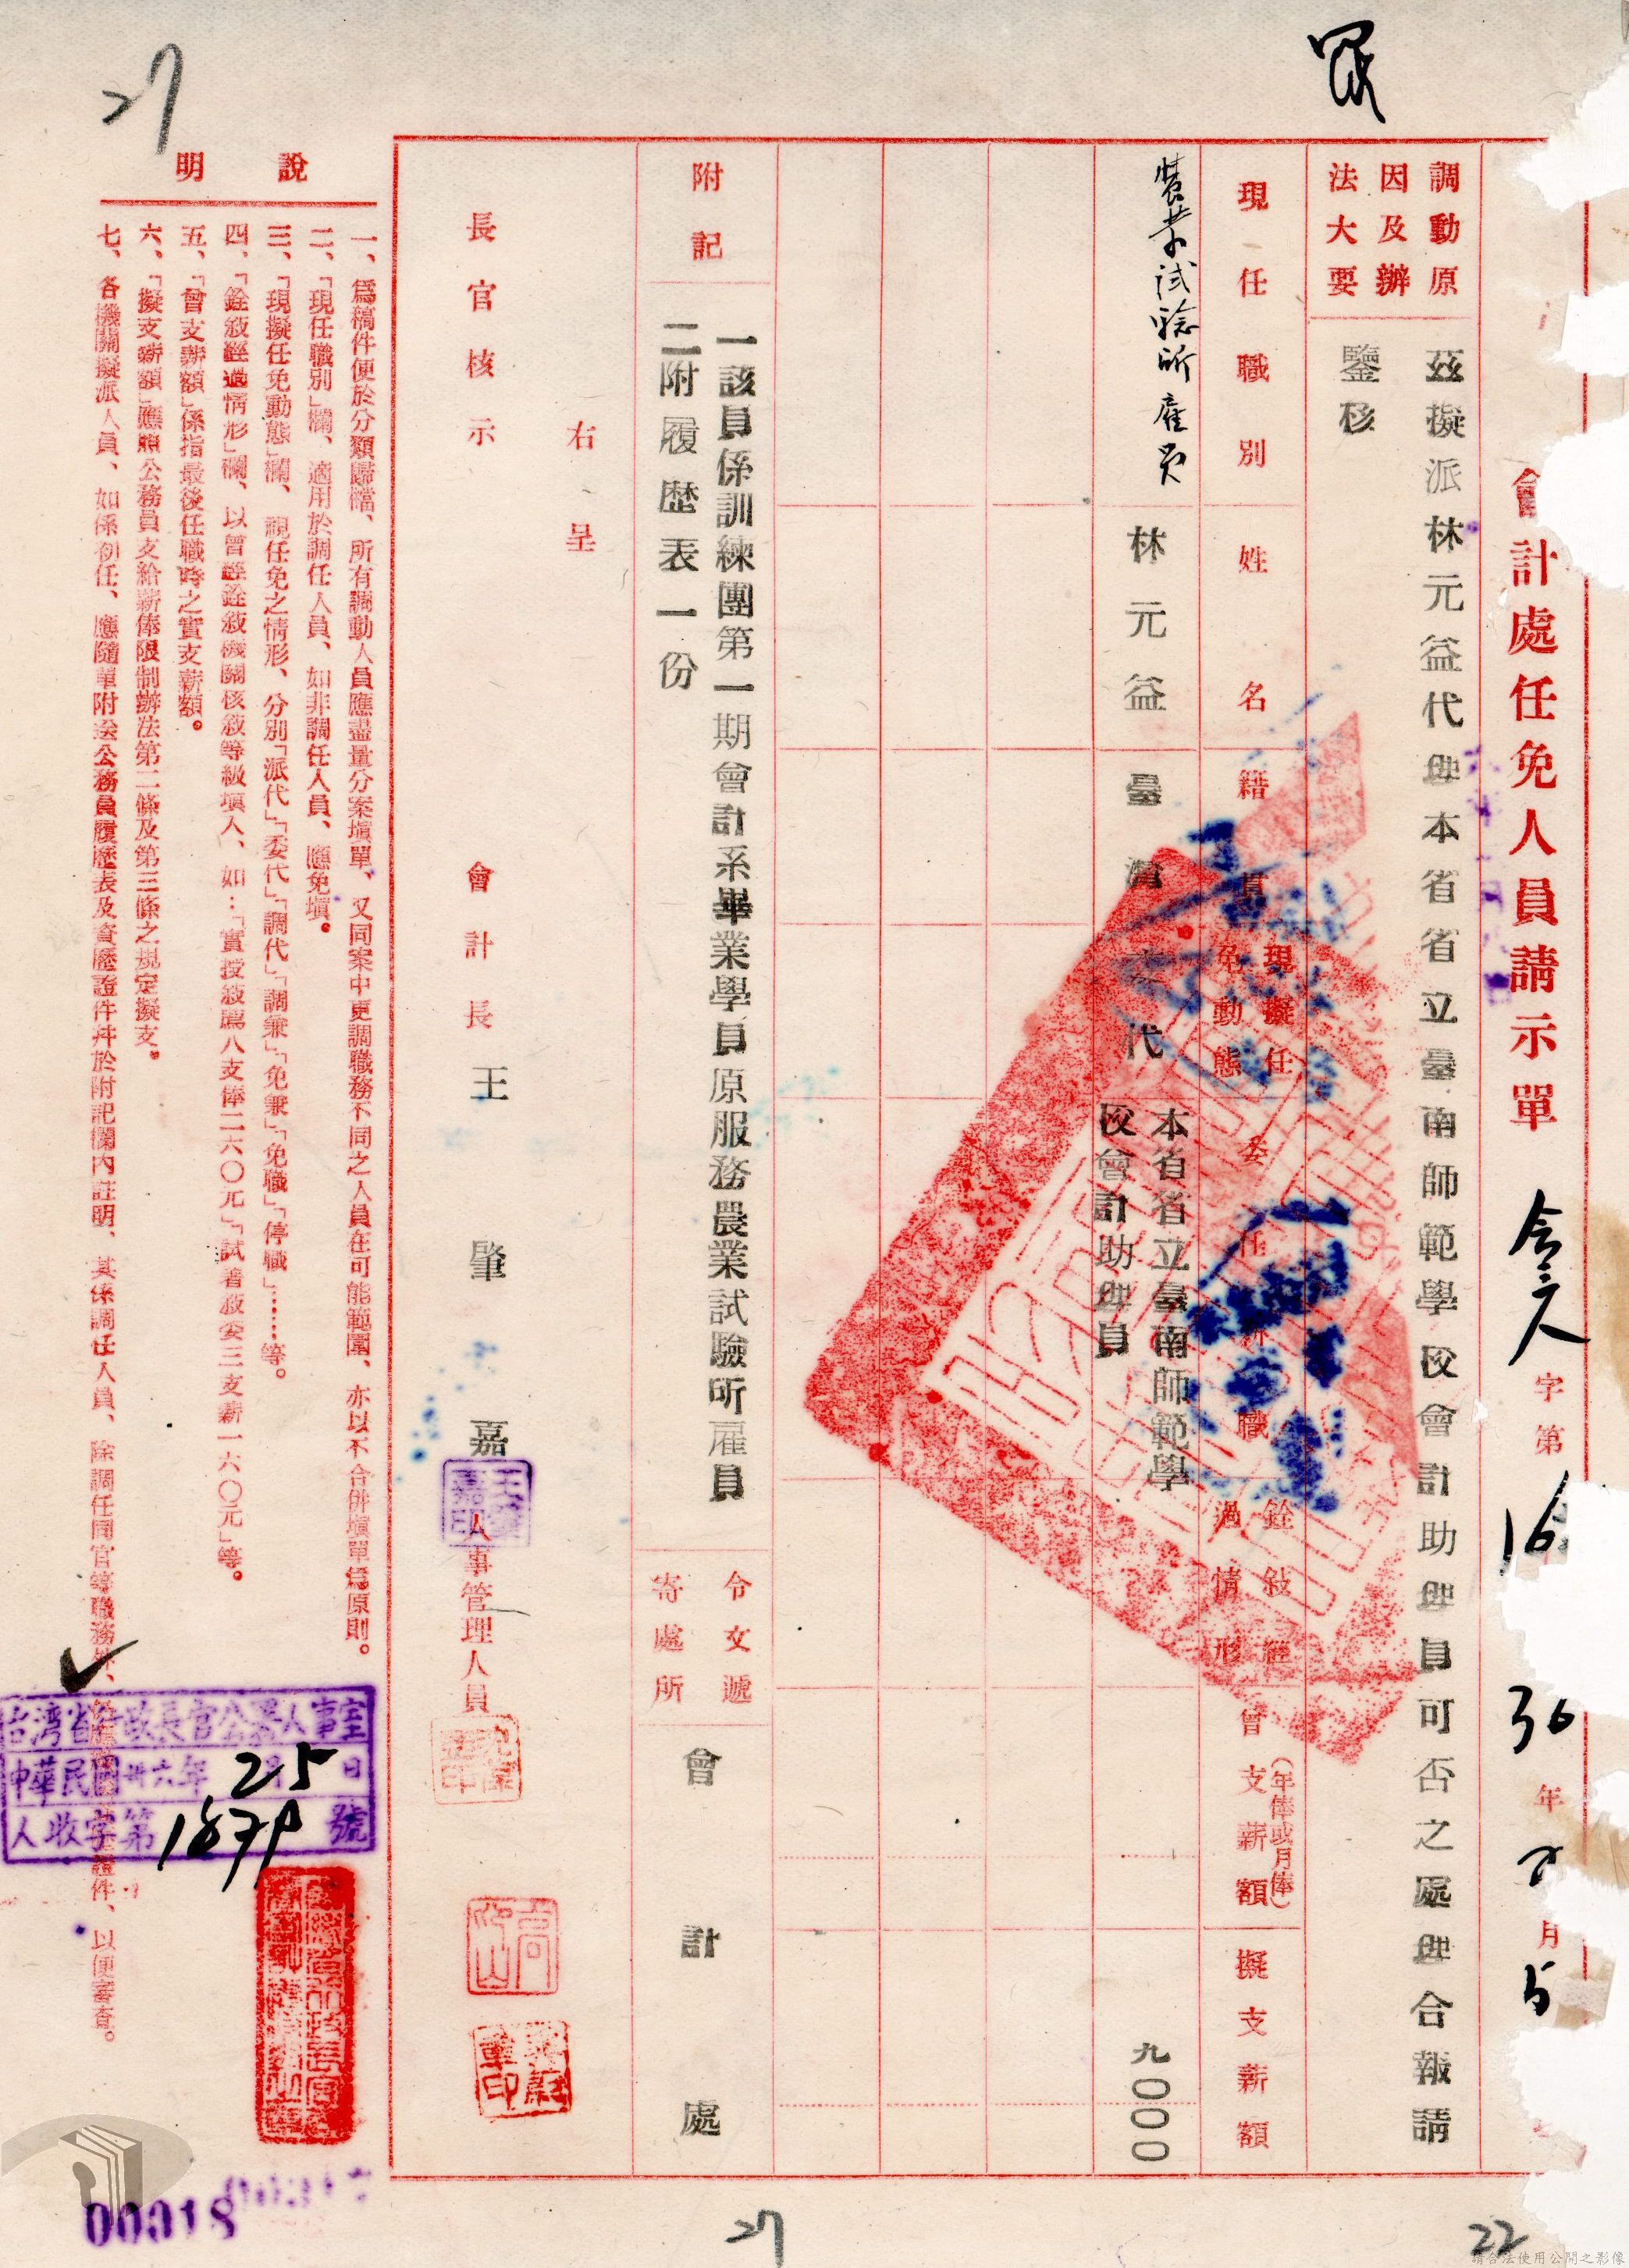 會計處任免人員請示單
字第16
36年 月5
調動原
因及辦
法大要
茲擬派林元益代理本省省立臺南師範學校會計助理員可否之處理合報請
鑒核
現任職別
姓名
籍貫
現擬任
免動態
委任新職
銓敍經
過情形
曾支薪額
(年俸或月俸)
擬支薪額
農業試驗所雇員
林元益
臺灣
代
本省省立臺南師範學
校會計助理員
九〇〇〇
附記
一該員係訓練團第一期會計系畢業學員原服務農業試驗所雇員
二附履歷表一份
令文遞
寄處所
會計處
右呈
長官核示
會計長王肇嘉
人事管理人員
說明
一、爲稿件便於分類歸檔、所有調動人員應盡量分案填單、又同案中更調職務不同之人員在可能範圍、亦以不合併填單爲原則。
二、「現任職別」欄、適用於調任人員、如非調任人員、應免填。
三、「現擬任免動態」欄、視任免之情形、分別「派代」「委代」「調代」「調兼」「免兼」「免職」「停職」……等。
四、「銓敍經過情形」欄、以曾經銓敍機關核敍等級填入、如：「實授敍薦八支俸二六〇元」「試署敍委三支薪一六〇元」等。
五、「曾支薪額」係指最後任職時之實支薪額。
六、「擬支薪額」應照公務員支給薪俸限制辦法第二條及第三條之規定擬支。
七、各機關擬派人員、如係初任、應隨單附送公務員履歷表及資歷證件幷於附記欄內註明、其係調任人員、除調任同官等職務外、證件、以便審查。
台灣省行政長官公署人事室
中華民國卅六年 月25日
人收字第1879號
00018
27
27
22
請合法使用公開之影像